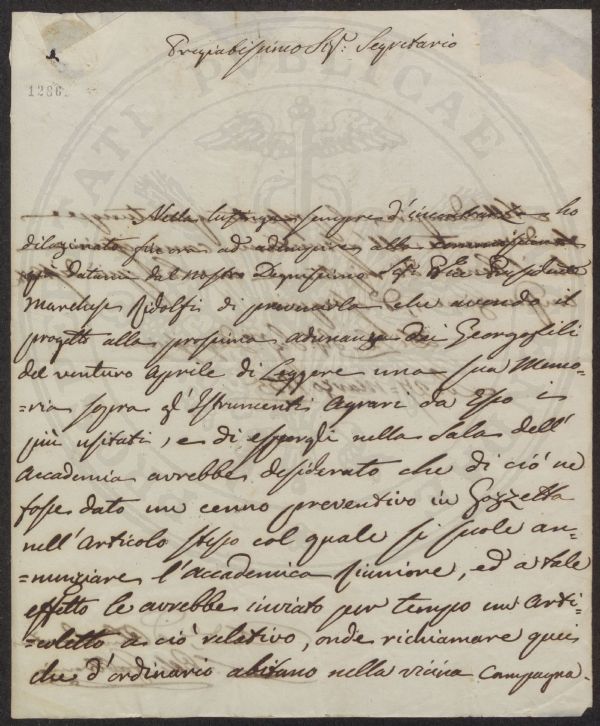 Pregiabilissimo Sigr: Segretario
1286.
PUBLICAE
Nella lusinga sempre d'incontrarla ho
dilazionato finora ad adempire alla commissione
datami dal nostro Degnissimo Sigr Vice Presidente
Marchese Ridolfi di prevenirla che avendo il
progetto alla prossima adunanza dei Georgofili
del venturo Aprile di Leggere una sua Memo-
=ria sopra gl'Istrumenti Agrari da Esso i
più usitati, e di esporgli nella Sala dell'
Accademia avrebbe desiderato che di ciò ne
fosse dato un cenno preventivo in Gazzetta
nell'Articolo stesso col quale si suole an-
=nunziare l'Accademica Riunione, ed a tale
effetto le avrebbe inviato per tempo un Arti-
=coletto a ciò relativo, onde richiamare quei
che d'ordinario abitano nella vicina Campagna.